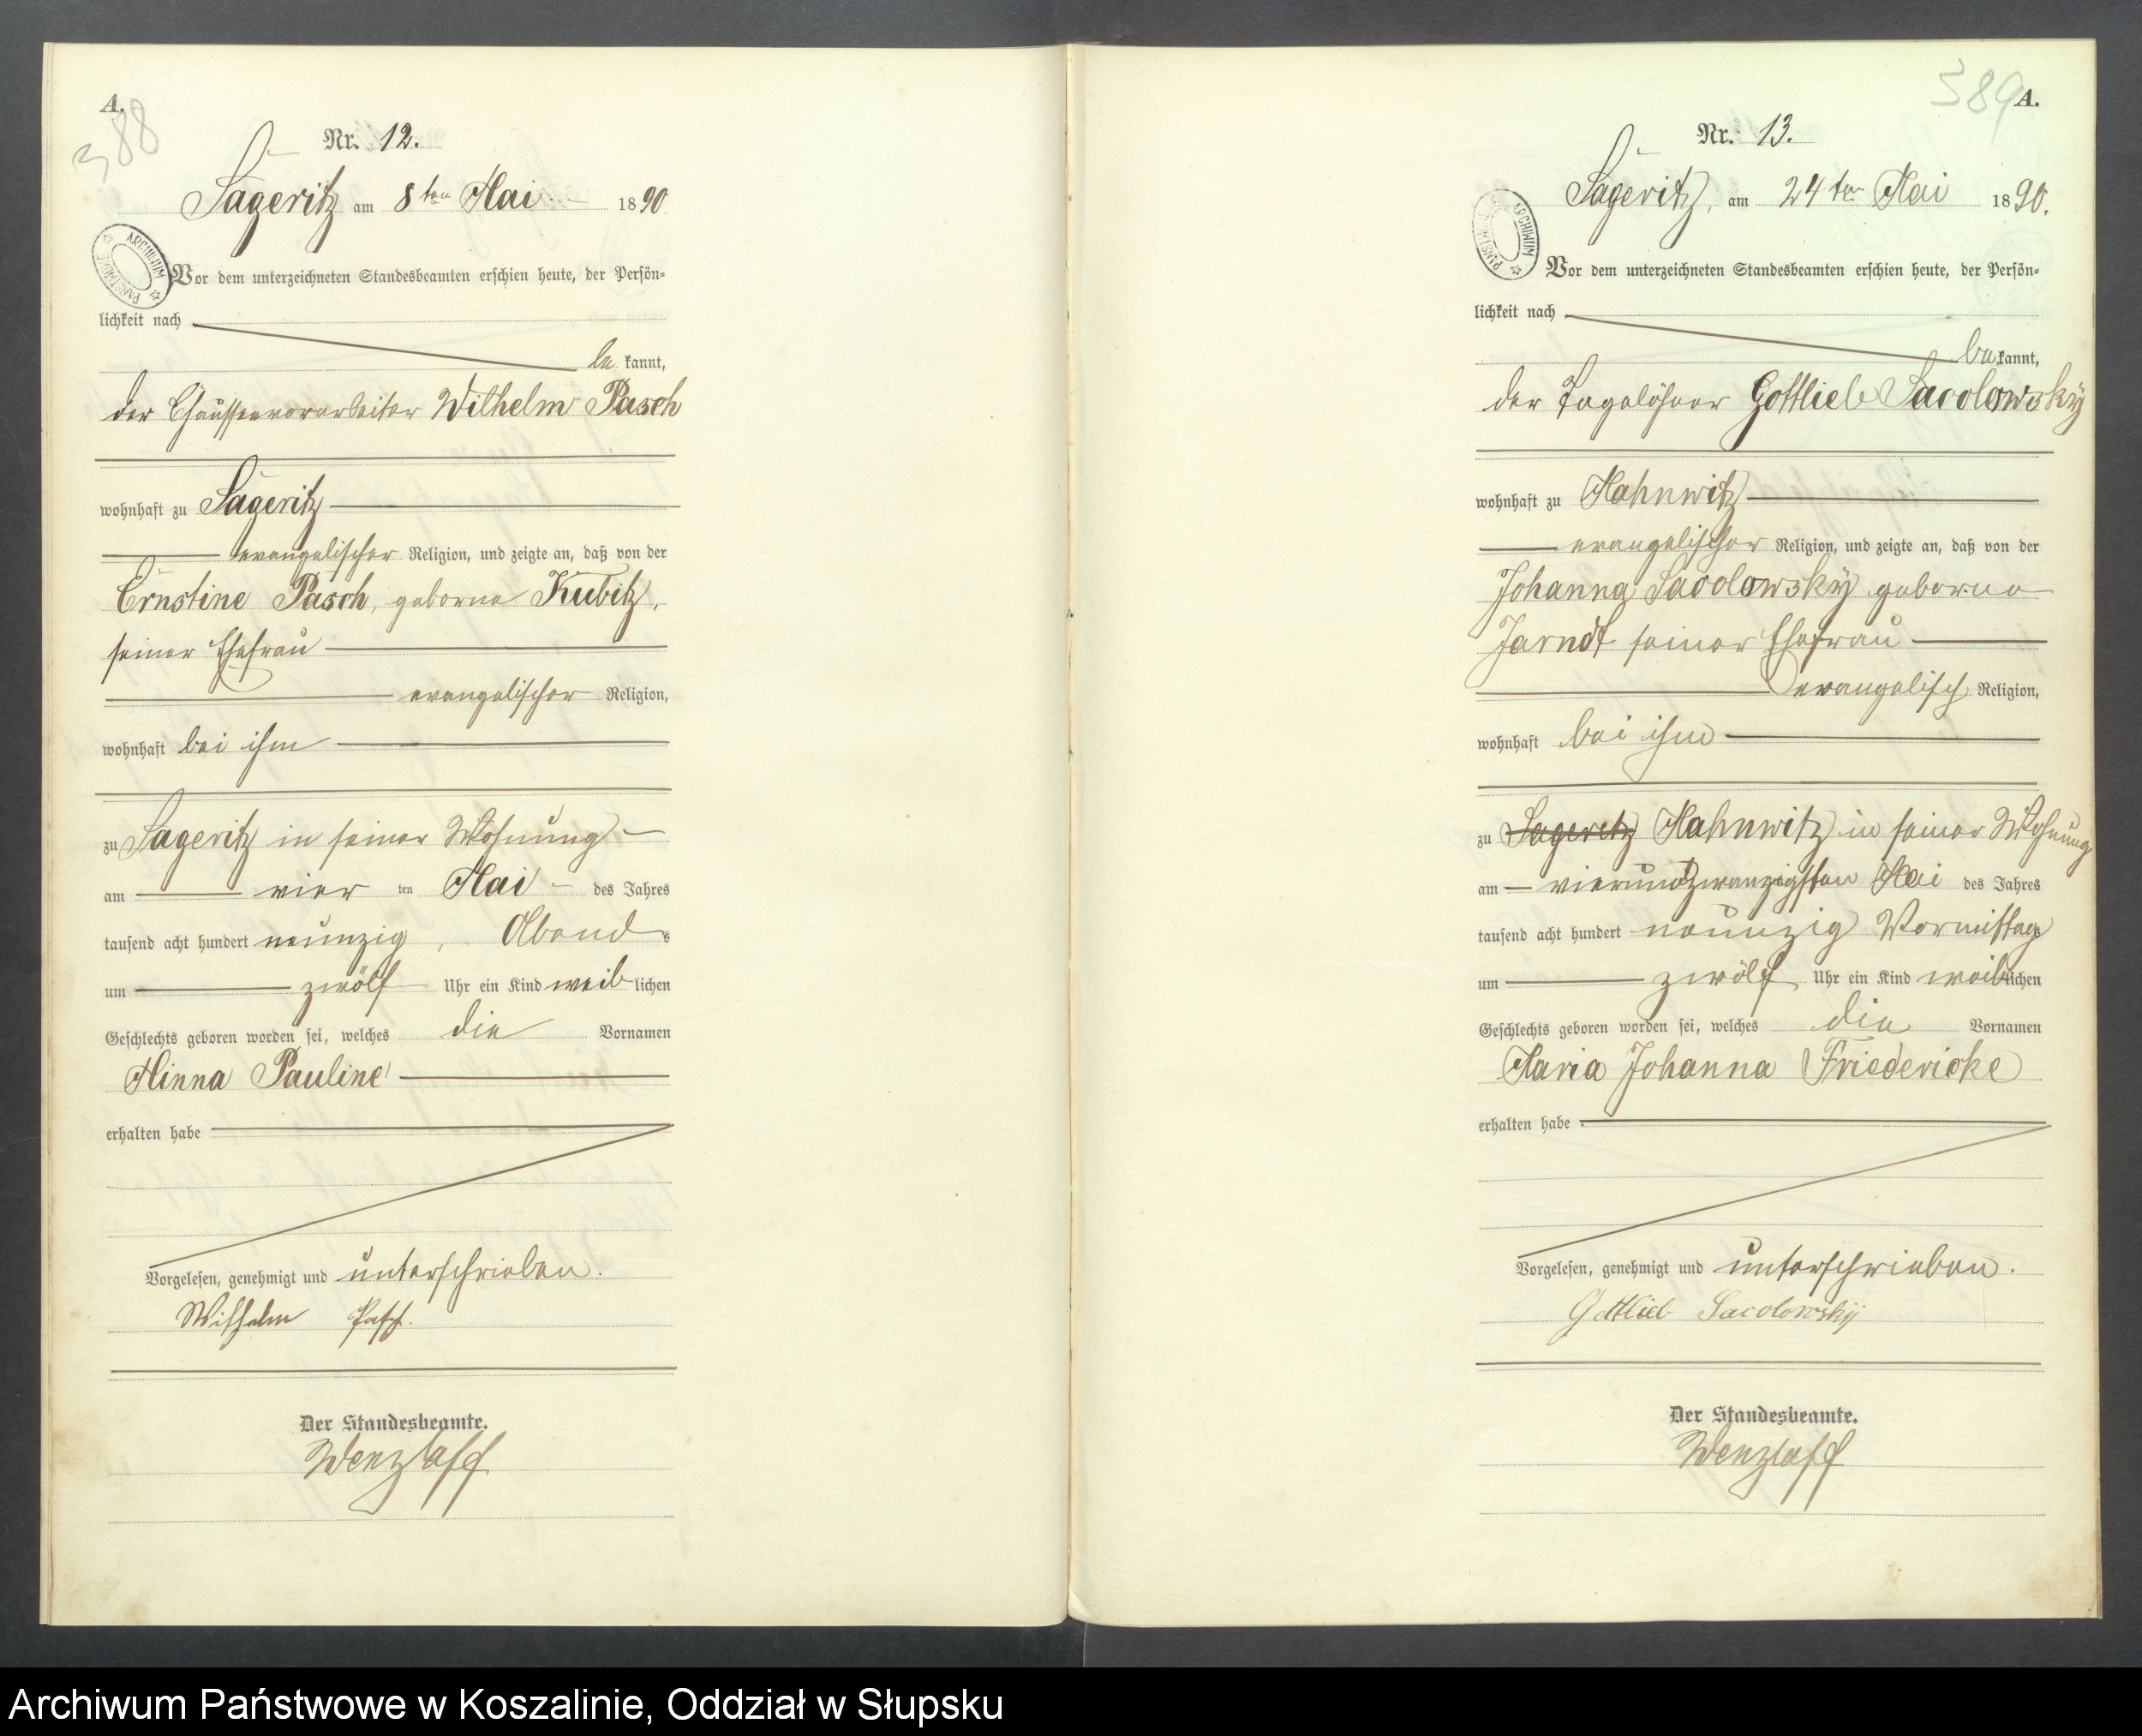 A.
388
Nr. 12.
Sageritz am 8ten Mai 1890
ARCHIWUM PAŃSTWOWE
Vor dem unterzeichneten Standesbeamten erschien heute, der Persön-
lichkeit nach
be kannt,
der Chausseevorarbeiter Wilhelm Pasch
wohnhaft zu Sageritz
evangelischer Religion, und zeigte an, daß von der
Ernstine Pasch, geborne Kubitz,
seiner Ehefrau
evangelischer Religion,
wohnhaft bei ihm
zu Sageritz in seiner Wohnung
am vier ten Mai des Jahres
tausend acht hundert neunzig, Abends
um zwölf Uhr ein Kind weiblichen
Geschlechts geboren worden sei, welches die Vornamen
Minna Pauline
erhalten habe
Vorgelesen, genehmigt und unterschrieben.
Wilhelm Pasch.
Der Standesbeamte.
Wenzlaff
389
A.
Nr. 13.
Sageritz, am 24ten Mai 1890.
ARCHIWUM
Vor dem unterzeichneten Standesbeamten erschien heute, der Persön-
lichkeit nach
bekannt,
der Tagelöhner Gottlieb Sacolowsky
wohnhaft zu Mahnwitz
evangelischer Religion, und zeigte an, daß von der
Johanna Sacolowsky geborne
Jarndt seiner Ehefrau
evangelisch Religion,
wohnhaft bei ihm
zu Sageritz Mahnwitz in seiner Wohnung
am vierundzwanzigsten Mai des Jahres
tausend acht hundert neunzig Vormittags
um zwölf Uhr ein Kind weiblichen
Geschlechts geboren worden sei, welches die Vornamen
Maria Johanna Friedericke
erhalten habe
Vorgelesen, genehmigt und unterschrieben.
Gottlieb Sacolowskij
Der Standesbeamte.
Wenzlaff
Archiwum Państwowe w Koszalinie, Oddział w Słupsku